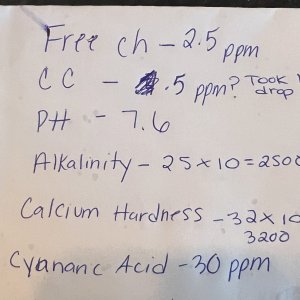 Free ch - 2.5 ppm
CC - .5 ppm? Took
drop
PH - 7.6
Alkalinity - 25 x 10 = 2500
Calcium Hardness - 32 x 10
3200
Cyananc Acid - 30 ppm